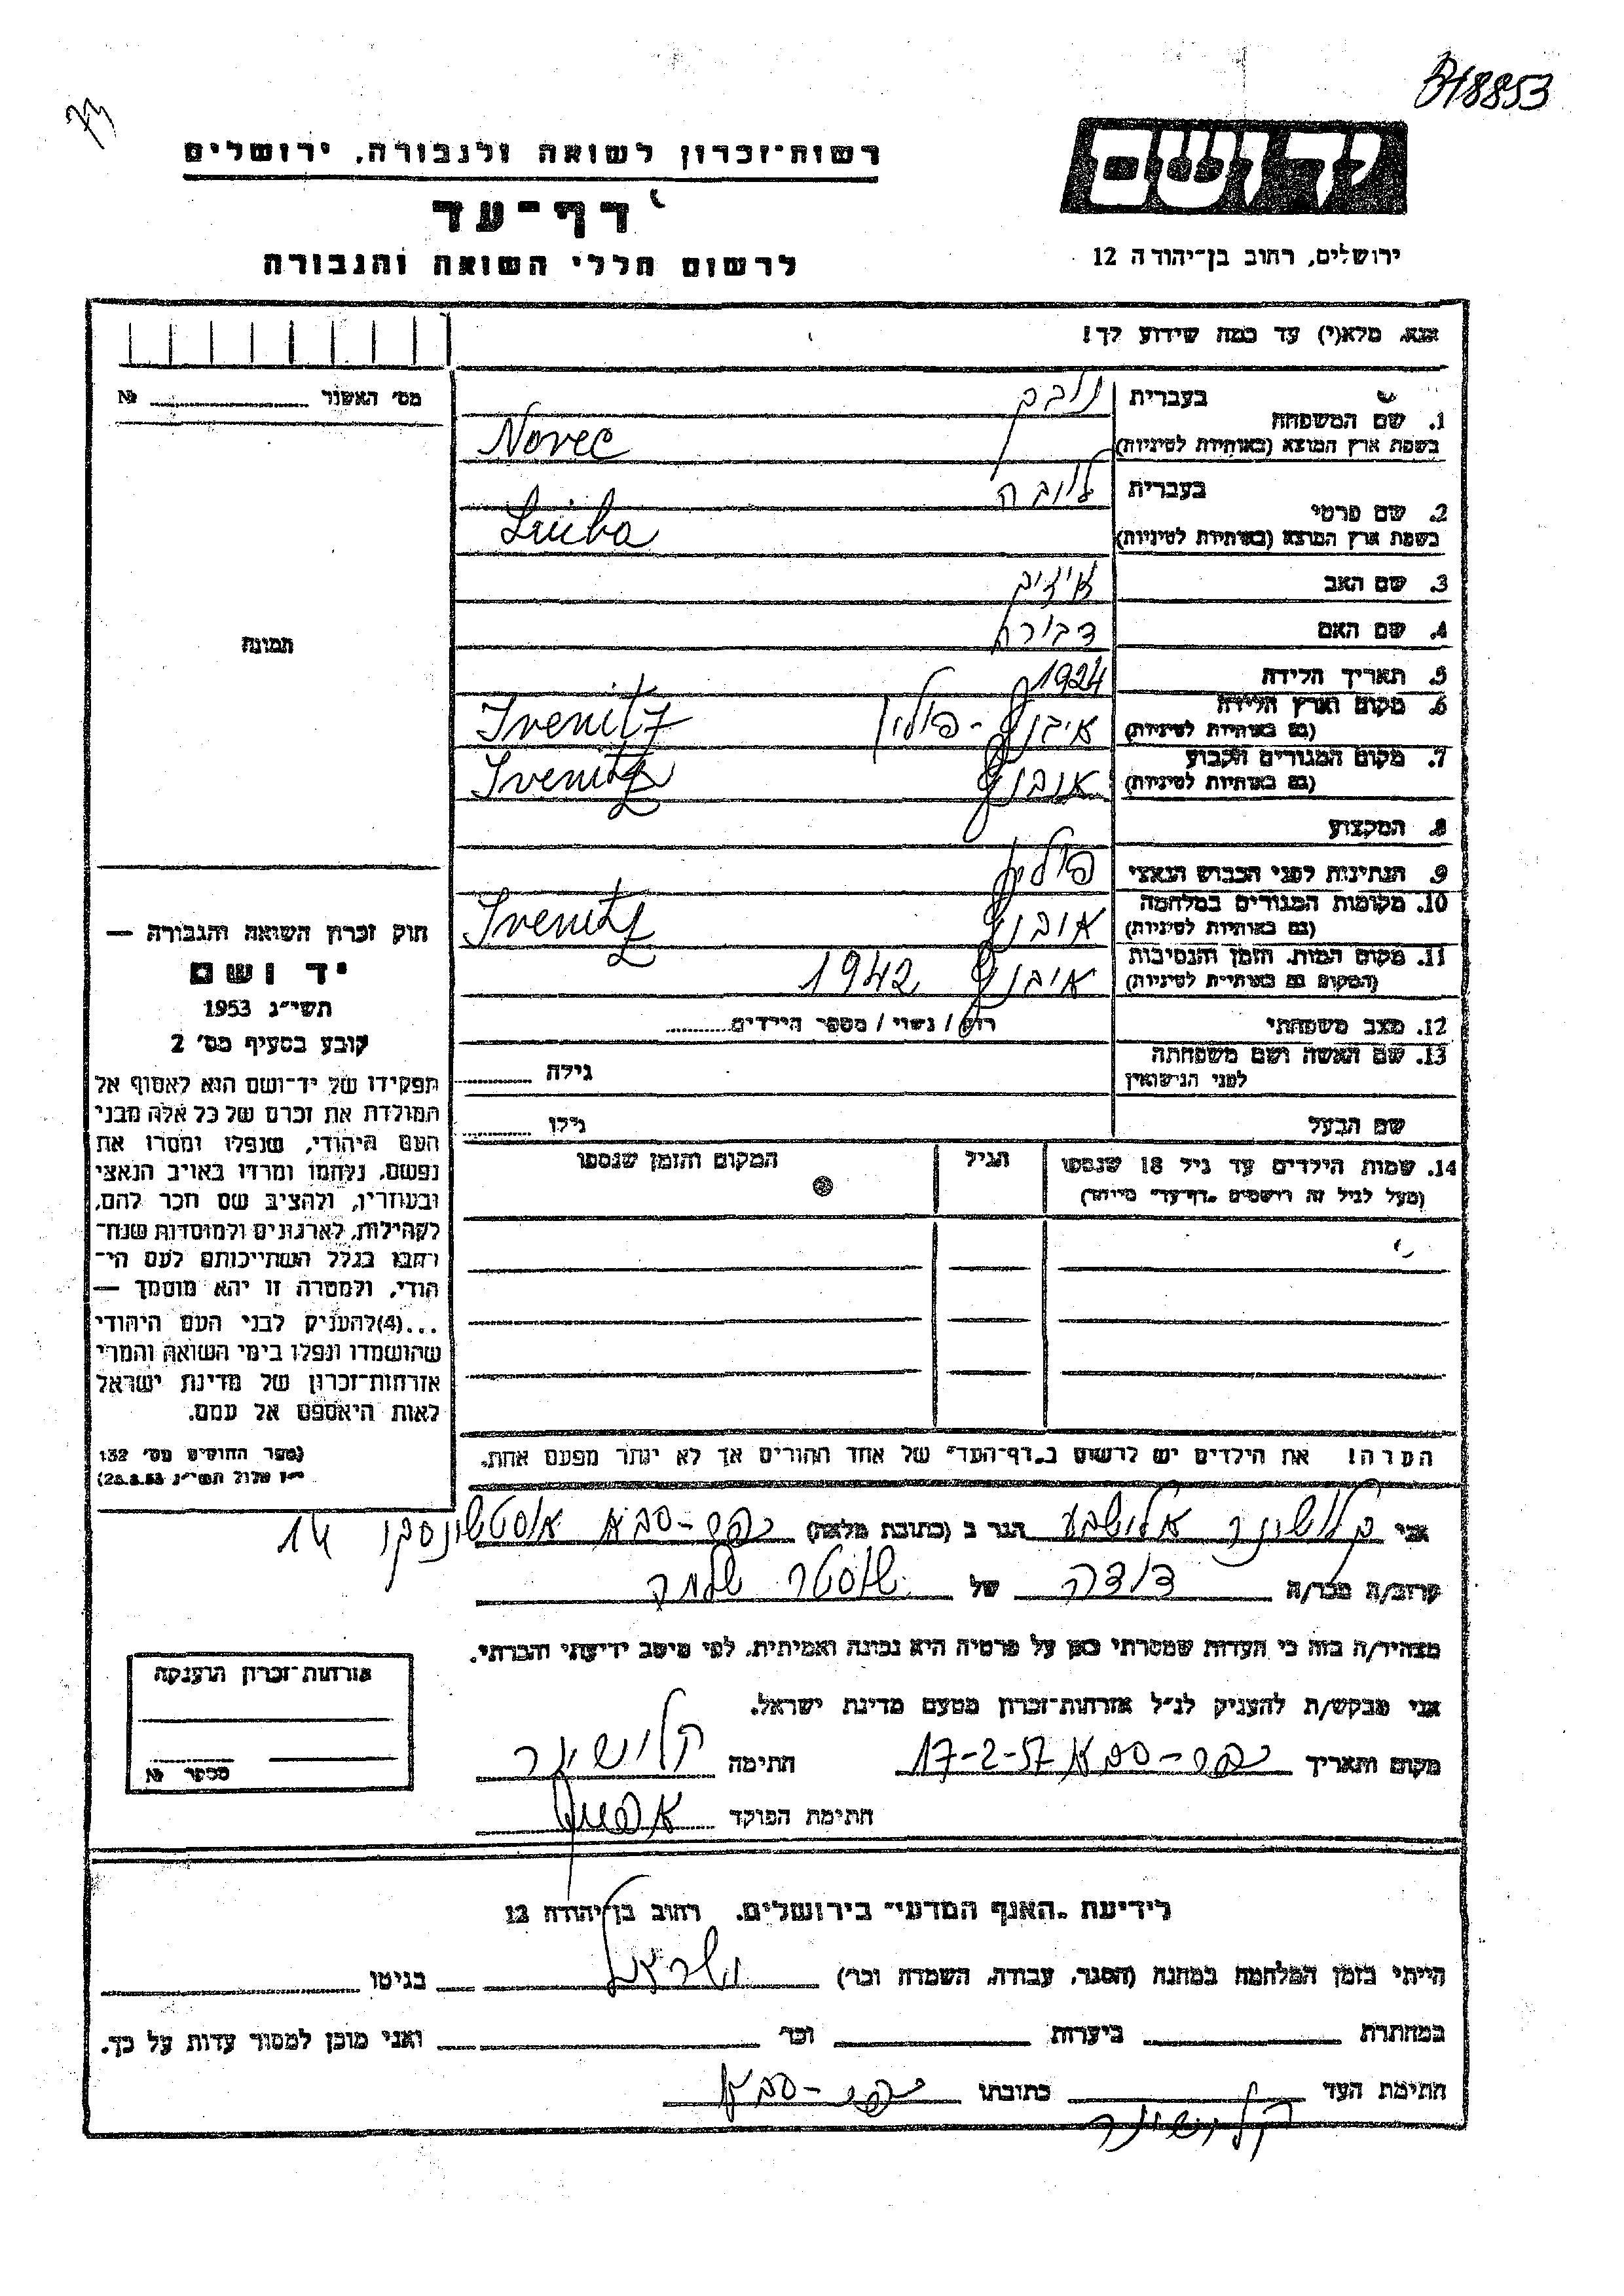 BH8853
רשות־זכרון לשואה ולגבורה, ירושלים
דף־עד
לרשום חללי השואה והגבורה
יד ושם
ירושלים, רחוב בן־יהודה 12
אנא, מלא(י) עד כמה שידוע לך!
מס׳ האשור № 
תמונה
חוק זכרון השואה והגבורה —
יד ושם
תשי״ג 1953
קובע בסעיף מס׳ 2
תפקידו של יד־ושם הוא לאסוף אל
המולדת את זכרם של כל אלה מבני
העם היהודי, שנפלו ומסרו את
נפשם, נלחמו ומרדו באויב הנאצי
ובעוזריו, ולהציב שם וזכר להם,
לקהילות, לארגונים ולמוסדות שנח־
רבו בגלל השתייכותם לעם הי־
הודי, ולמטרה זו יהא מוסמך —
...(4)להעניק לבני העם היהודי
שהושמדו ונפלו בימי השואה והמרי
אזרחות־זכרון של מדינת ישראל
לאות היאספם אל עמם.
(ספר החוקים מס׳ 132
י״ז אלול תשי״ג 28.8.53)
1. שם המשפחה בעברית
בשפת ארץ המוצא (באותיות לטיניות) Novec
2. שם פרטי בעברית ליובה
בשפת ארץ המוצא (באותיות לטיניות) Luiba
3. שם האב איציק
4. שם האם דבורה
5. תאריך הלידה 1924
6. מקום וארץ הלידה איבניץ - פולין Ivenitz
(גם באותיות לטיניות)
7. מקום המגורים הקבוע איבניץ Ivenitz
(גם באותיות לטיניות)
8. המקצוע
9. הנתינות לפני הכבוש הנאצי פולין
10. מקומות המגורים במלחמה איבניץ Ivenitz
(גם באותיות לטיניות)
11. מקום המות, הזמן והנסיבות איבניץ 1942
(המקום גם באותיות לטיניות)
12. מצב משפחתי רוק / נשוי / מספר הילדים
13. שם האשה ושם משפחתה גילה
לפני הנישואין
שם הבעל גילו
14. שמות הילדים עד גיל 18 שנספו הגיל המקום והזמן שנספו
(מעל לגיל זה רושמים „דף־עד״ מיוחד)
הערה! את הילדים יש לרשום ב„דף־העד״ של אחד ההורים אך לא יותר מפעם אחת.
אני קלושינר אלישבע הגר ב (כתובת מלאה) כפר-סבא אוסטשינסקי 14
קרוב/ה מכר/ה דודה של שוסטר שלמה
מצהיר/ה בזה כי העדות שמסרתי כאן על פרטיה היא נכונה ואמיתית, לפי מיטב ידיעתי והכרתי.
אני מבקש/ת להעניק לנ״ל אזרחות־זכרון מטעם מדינת ישראל.
מקום ותאריך כפר-סבא 17-2-57 חתימה קלושינר
חתימת הפוקד
אזרחות־זכרון הוענקה
מספר №
לידיעת „האגף המדעי״ בירושלים, רחוב בן־יהודה 12
הייתי בזמן המלחמה במחנה (הסגר, עבודה, השמדה וכו׳) בגיטו
במחתרת ביערות וכו׳ ואני מוכן למסור עדות על כך.
חתימת העד קלושינר כתובתו כפר-סבא